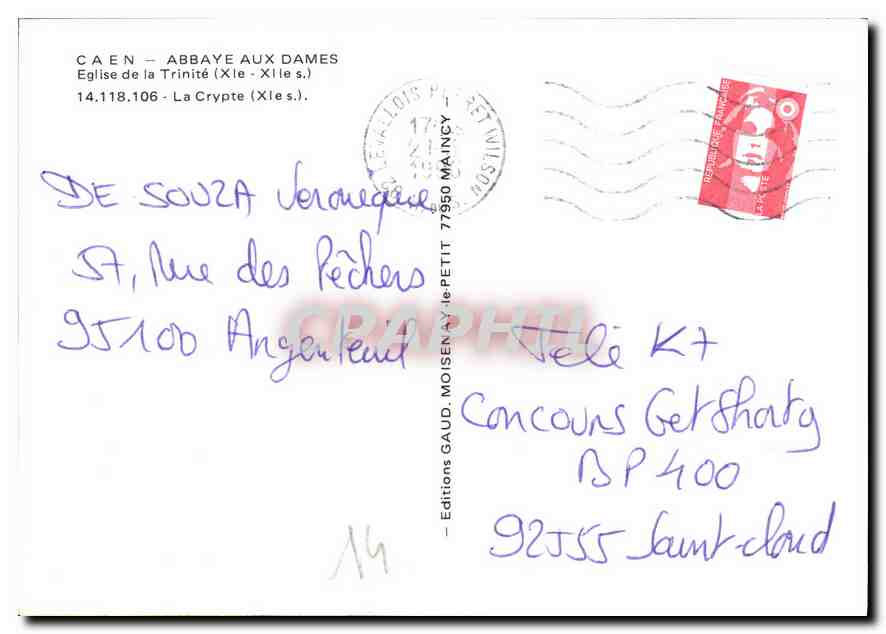 CAEN — ABBAYE AUX DAMES
Eglise de la Trinité (XIe - XIIe s.)
14.118.106 - La Crypte (XIe s.).
LEVALLOIS PERRET WILSON
RÉPUBLIQUE FRANÇAISE
LA POSTE
DE SOUZA Veronique
57, Rue des Pêchers
95100 Argenteuil
— Editions GAUD. MOISENAY-le-PETIT 77950 MAINCY
CPAPHIL
Télé K7
Concours Get Shorty
BP 400
92555 Saint-cloud
14